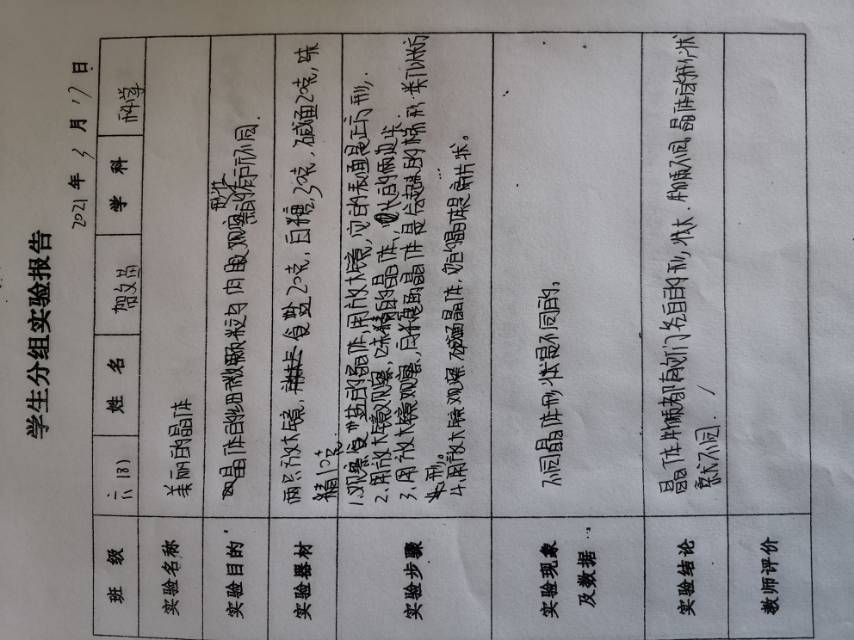 学生分组实验报告
2021年3月17日
班级 六(3) 姓名 学科 科学
实验名称 美丽的晶体
实验目的 晶体的细微颗粒与肉眼观察
的有所不同.
实验器材 两只放大镜, 食盐20克, 白糖30克, 碱面20克, 味
精10克
实验步骤 1.观察食盐的晶体,用放大镜,它的表面是正方形,.
2.用放大镜观察,味精的晶体,
3.用放大镜观察,白糖的晶体是 的梯形 类似长方
形。
4.用放大镜观察 碱面晶体, 的晶体是扇片状。
实验现象
及数据 不同晶体形,状是不同的。
实验结论 晶体 都有它们各自的形,状大. 种俩不同,晶体的形状
就不同.
教师评价